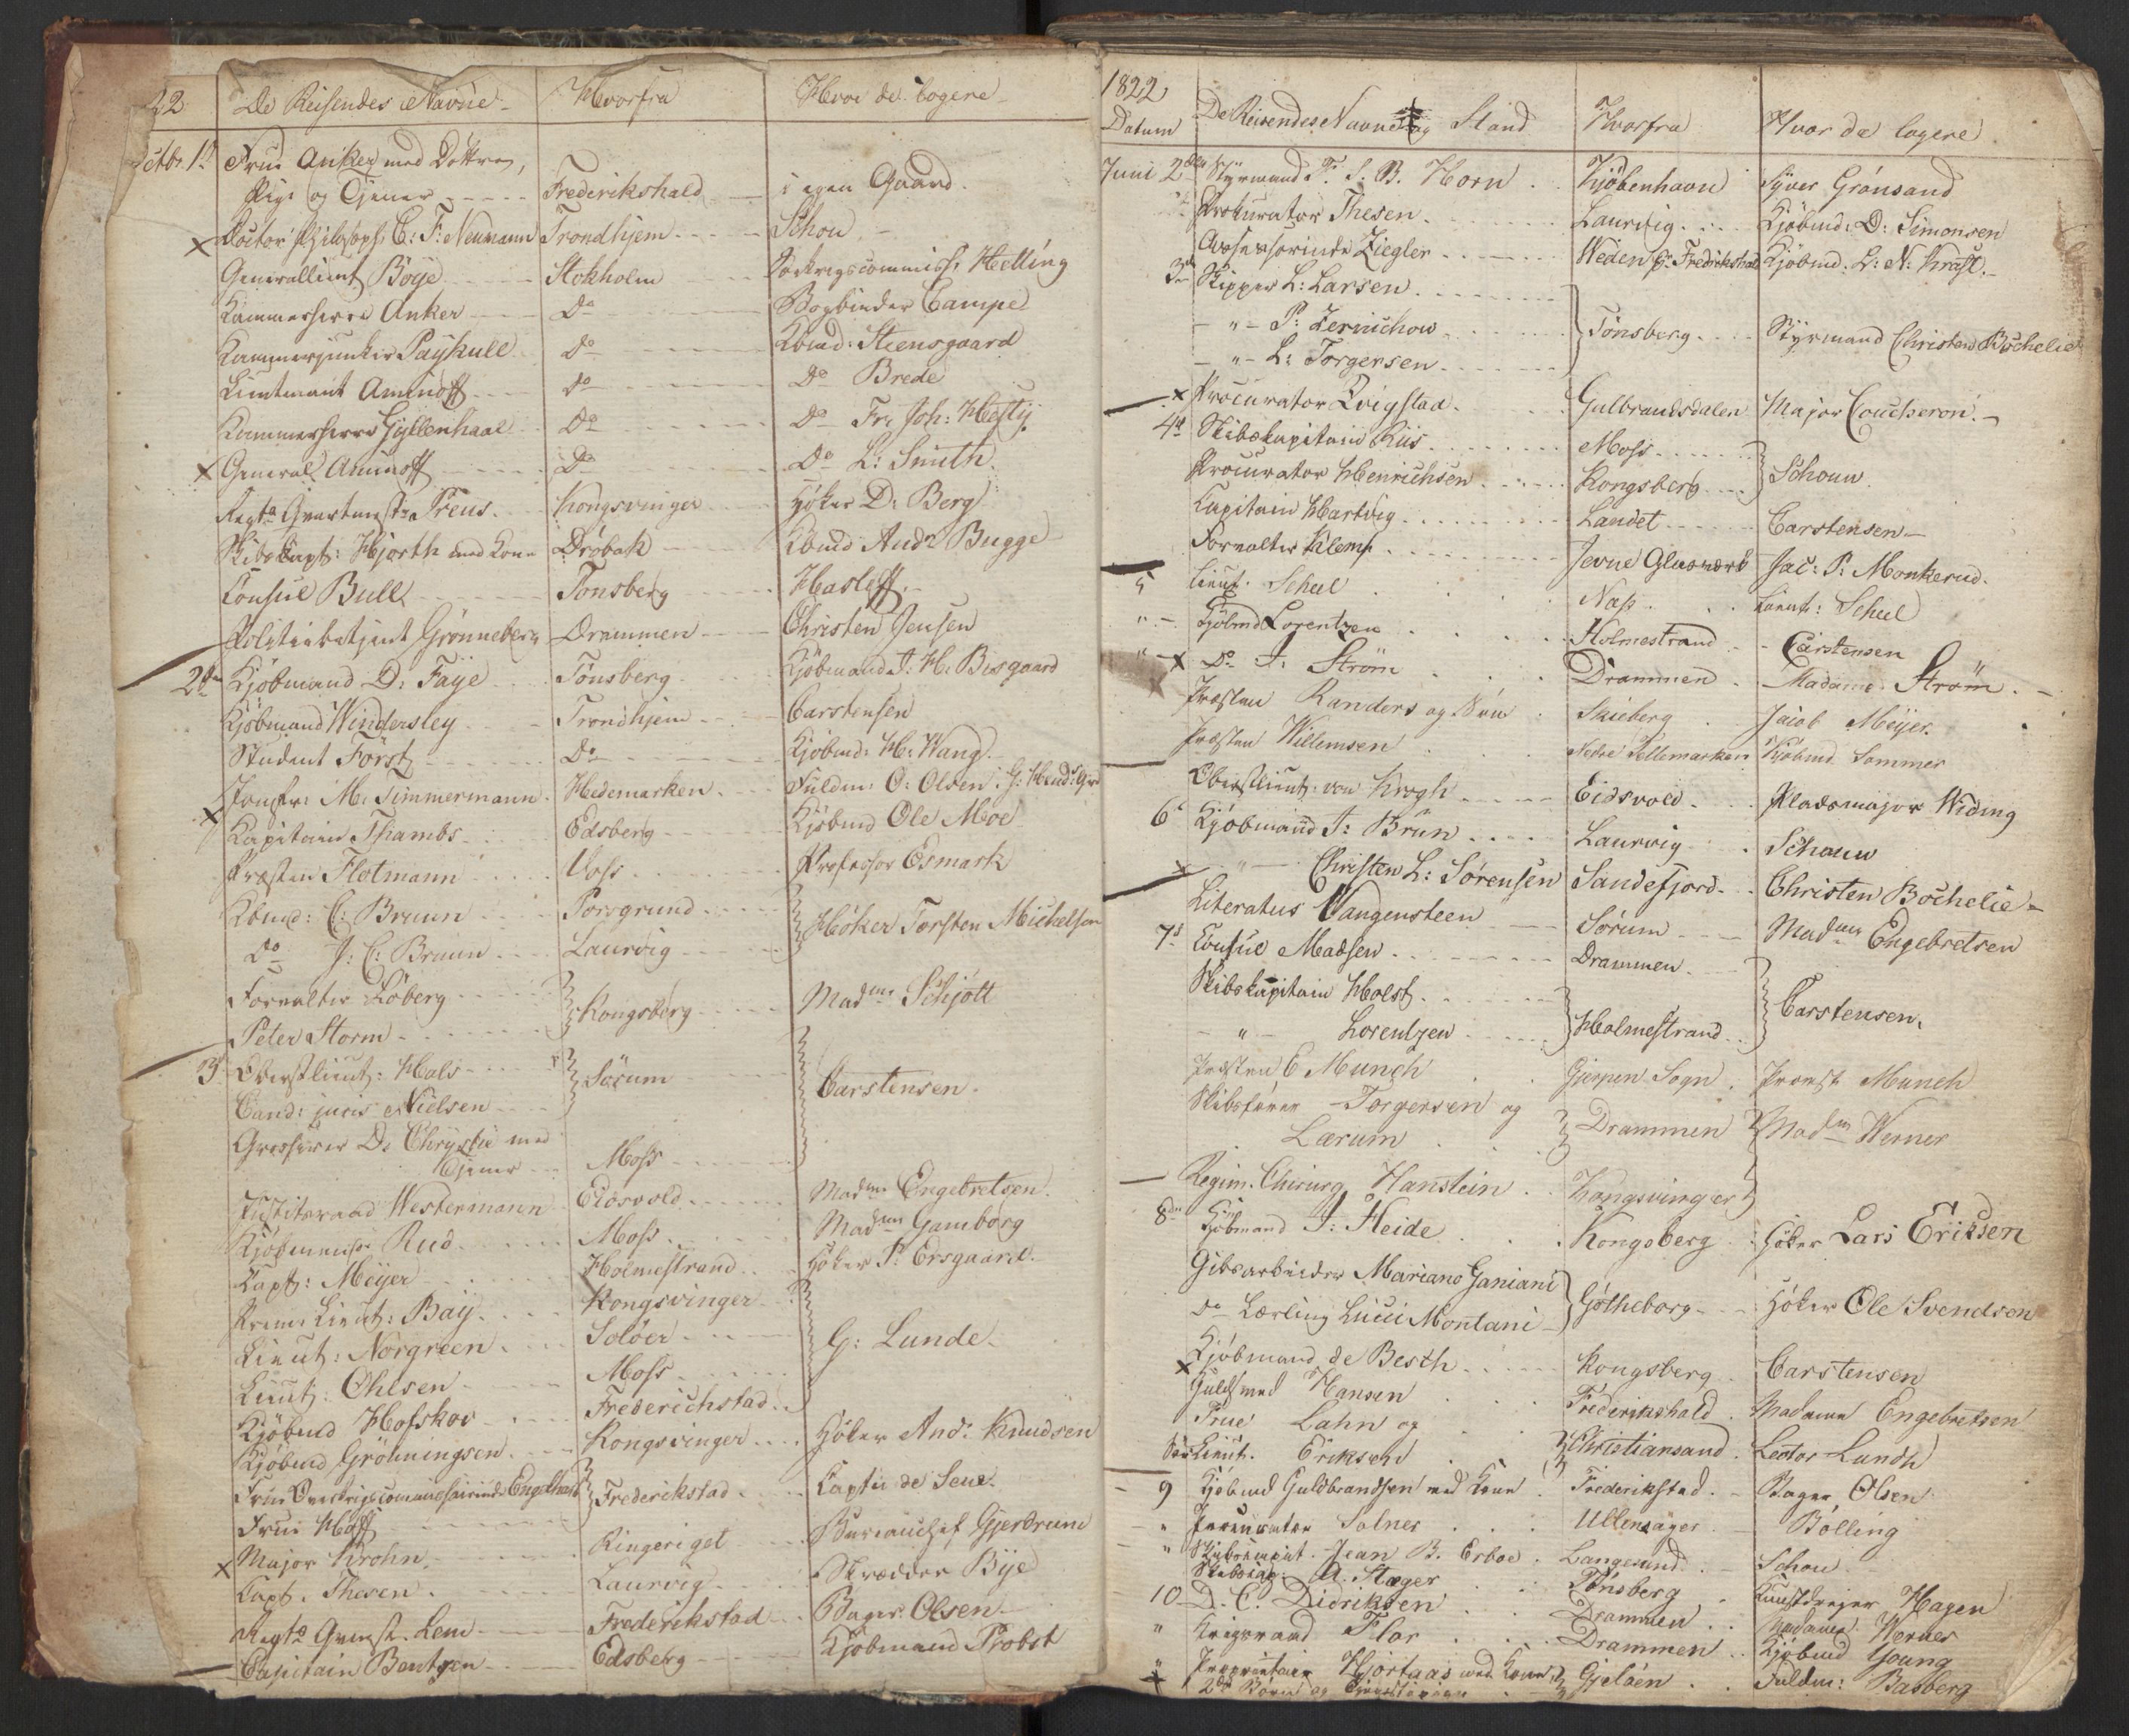 22 De Reisendes Navne Hvorfra Hvor de logere
Octbr. 1st Frue Anker med Døttre,
Pige og Tjener Frederikshald i egen Gaard.
x Doctor Philosoph: C: F: Neumann Trondhjem Schou
Generallieut Boye Stokholm Helling
Kammerherre Anker Do Bogbinder Campe
Kammerjunker Paykull Do Kbmd: Steensgaard
Lieutenant Aminoff Do Do Brede
Kammerherre Gyllenhaal Do Do Fr: Joh: Hefty
x General Aminoff Do Do L: Smith
Regts Qvartmstr Preus. Kongsvinger Høker D: Berg
Skibskapt: Hjorth med Kone Drøbak Kbmd Andr Bugge
Consul Bull Tonsberg Hasleff
Politiebetjent Grønneberg Drammen Christen Jensen
2den Kjøbmand D: Faye Tønsberg Kjøbmand J. H. Bisgaard
Kjøbmand Windersley Trondhjem Carstensen
Student Först Do Kjøbmd: H: Wang
Jomfr: M: Timmermann Hedemarken Fuldm: O: Olsen
x Kapitain Thambs Edsberg Kjøbmd Ole Moe
Præsten Flotmann Voss Professor Esmark
Kbmd: C: Bruun Porsgrund Høker Torsten Michelsen
do J: C: Bruun Laurvig
Forvalter Løberg Kongsberg Madme Schjøtt
Peter Storm
3 Oberstlieut: Hals Sørum Carstensen.
Cand: juris Nielsen
Grosserer D: Chrystie med
Tjener Moss
Justitsraad Westermann Eidsvold Madme Engebretsen.
Rud Moss Madme Gamborg
Capt: Meyer Holmestrand Høker P: Ersgaard.
Prem: Lieut: Bay Kongsvinger
Lieut: Norgreen Soløer G: Lunde
Lieut: Ohlsen Moss
Kjøbmd Hofskov Frederichstad
Kjøbmd Grøhningsen Kongsvinger Høker And: Knudsen
Frue Overkrigscommissairinde Engelhart Frederikstad Captn de Seue.
Frue Hoff
x Major Krohn Ringeriget Bureauchef Gjerdrum
Capt. Thesen Laurvig Skrædder Bye
Regts Qvmst. Lem Frederikstad Bager Olsen
Capitain Bentzen Edsberg Kjøbmand Probst
1822
Datum De Reisendes Navne og Stand Hvorfra Hvor de logere
Juni 2den Styrmand F. S. B. Horn Kjøbenhavn Syver Grønsand
Prokurator Thesen Laurvig Kjøbmd: D: Simonsen
Assessorinde Ziegler Weden pr Fredrikshald Kjøbmd: L: N: Kraft
3de Skipper L: Larsen
" P: Zernichow Tønsberg Styrmand Christen Bøchelie
" L: Torgersen
x Procurator Qvigstad Gulbrandsdalen Major Coucheron
4de Skibskapitain Riis Moss Schouw
Procurator Henrichsen Kongsberg
Capitain Hartvig Landet Carstensen
Forvalter Klemp Jevne Glasværk Jac: P: Monkerud
5 Lieut. Schul Næss Lieut: Schul
" Kjøbmd Lorentzen Holmestrand Carstensen
" x Do J: Strøm Drammen Madame Strøm
Præsten Randers og Søn Skieberg Jacob Meyer
Præsten Willemsen Nedre Tellemarken Kjøbmd Sommer
Oberstlieut: von Krogh Eidsvold Pladsmajor Widing
6te Kjøbmand J: Brun Laurvig Schouw
x " Christen L: Sørensen Sandefjord Christen Bøchelie
Literatus Wangensteen Sørum Madme Engebretsen
7de Consul Madsen Drammen
Skibskapitain Holst Carstensen.
" Lorentzen Holmestrand
Præsten C Munch Gjerpen Sogn Provst Munch
Skibsfører Torgersen og
Lærum Drammen Madme Werner
Regim. Chirurg Hanstein Kongsvinger
8de Kjøbmand J: Heide Kongsberg Høker Lars Eriksen
Gibsarbeider Mariano Ganiani
do Lærling Lucci Montani Gøtheborg Høker Ole Svendsen
Kjøbmand de Besth Kongsberg Carstensen
x Guldsmed Hansen Frederikshald Madame Engebretsen
Frue Lahn og
Lieut. Eriksen Christiansand Lector Lundh
9 Kjøbmd Guldbrandsen med Kone Frederikstad Bager Olsen
" Procurator Solner Ullensager Bølling
" Jean B. Erboe Langesund Schou
Skibscap. A. Stæger Tønsberg Kunstdreyer Hagen
10 D. C. Didriksen Drammen Madame Werner
" Krigsraad Flor Drammen Kjøbmd Young
" Proprietair Hjortaas med Kone Gjeløen Fuldm: Basberg
x 2de Børn og